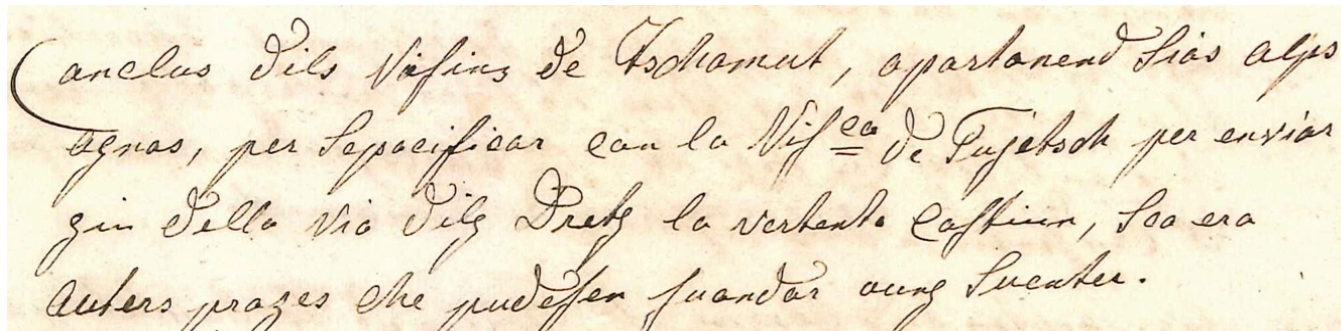 Canclus dils Vischins de Tschamut, apartanend Sias alps
agnas, per Sepacificar cun la Visca de Tujetsch per enviar
gin della via dilg Dretg la vertenta Caschiun, Sco era
auters prozes che pudessen suandar aung Suenter.